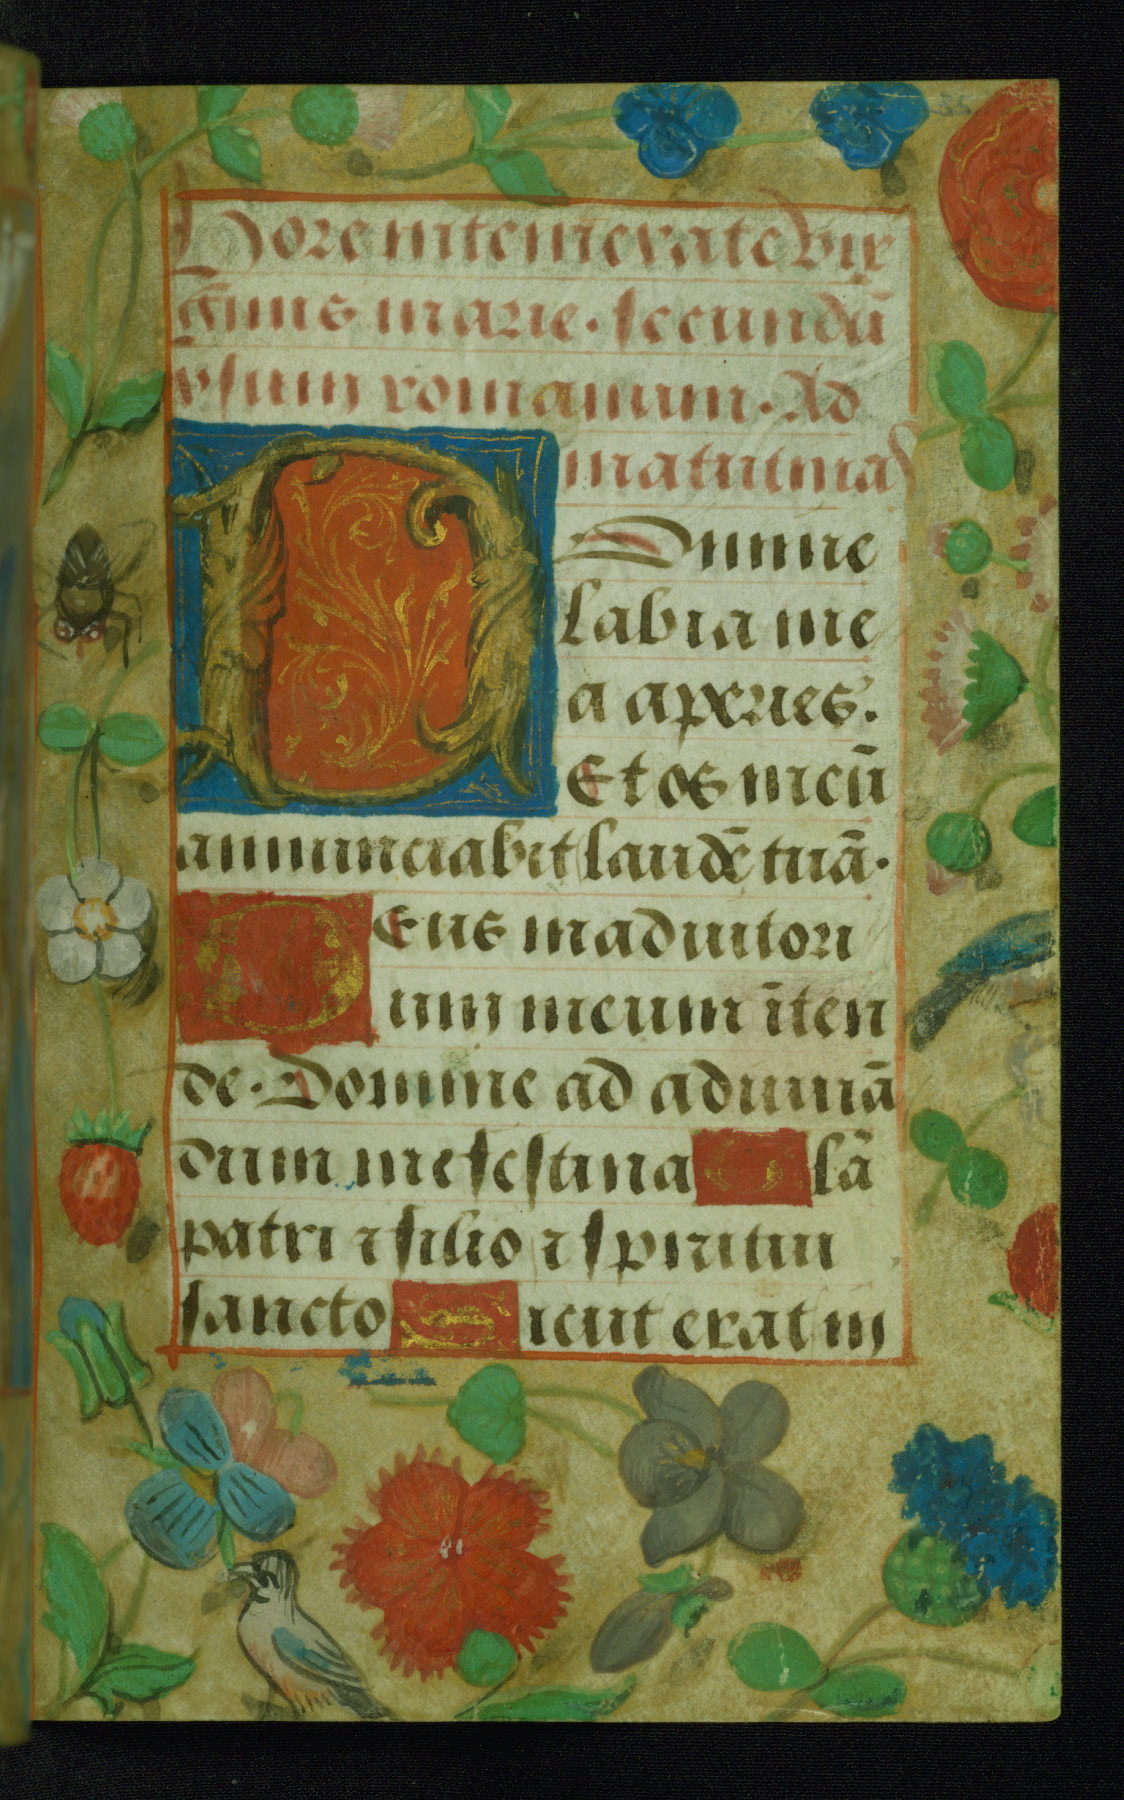 Hore intemerate vir
ginis marie. secundū
vsum romanum. Ad
matutinas
Domine
labia me
a aperies.
Et os meū
annunciabit laudē tuā.
Deus in adiutori
um meum īten
de. Domine ad adiuuā
dum me festina Glā
patri ⁊ filio ⁊ spiritui
sancto Sicut erat in